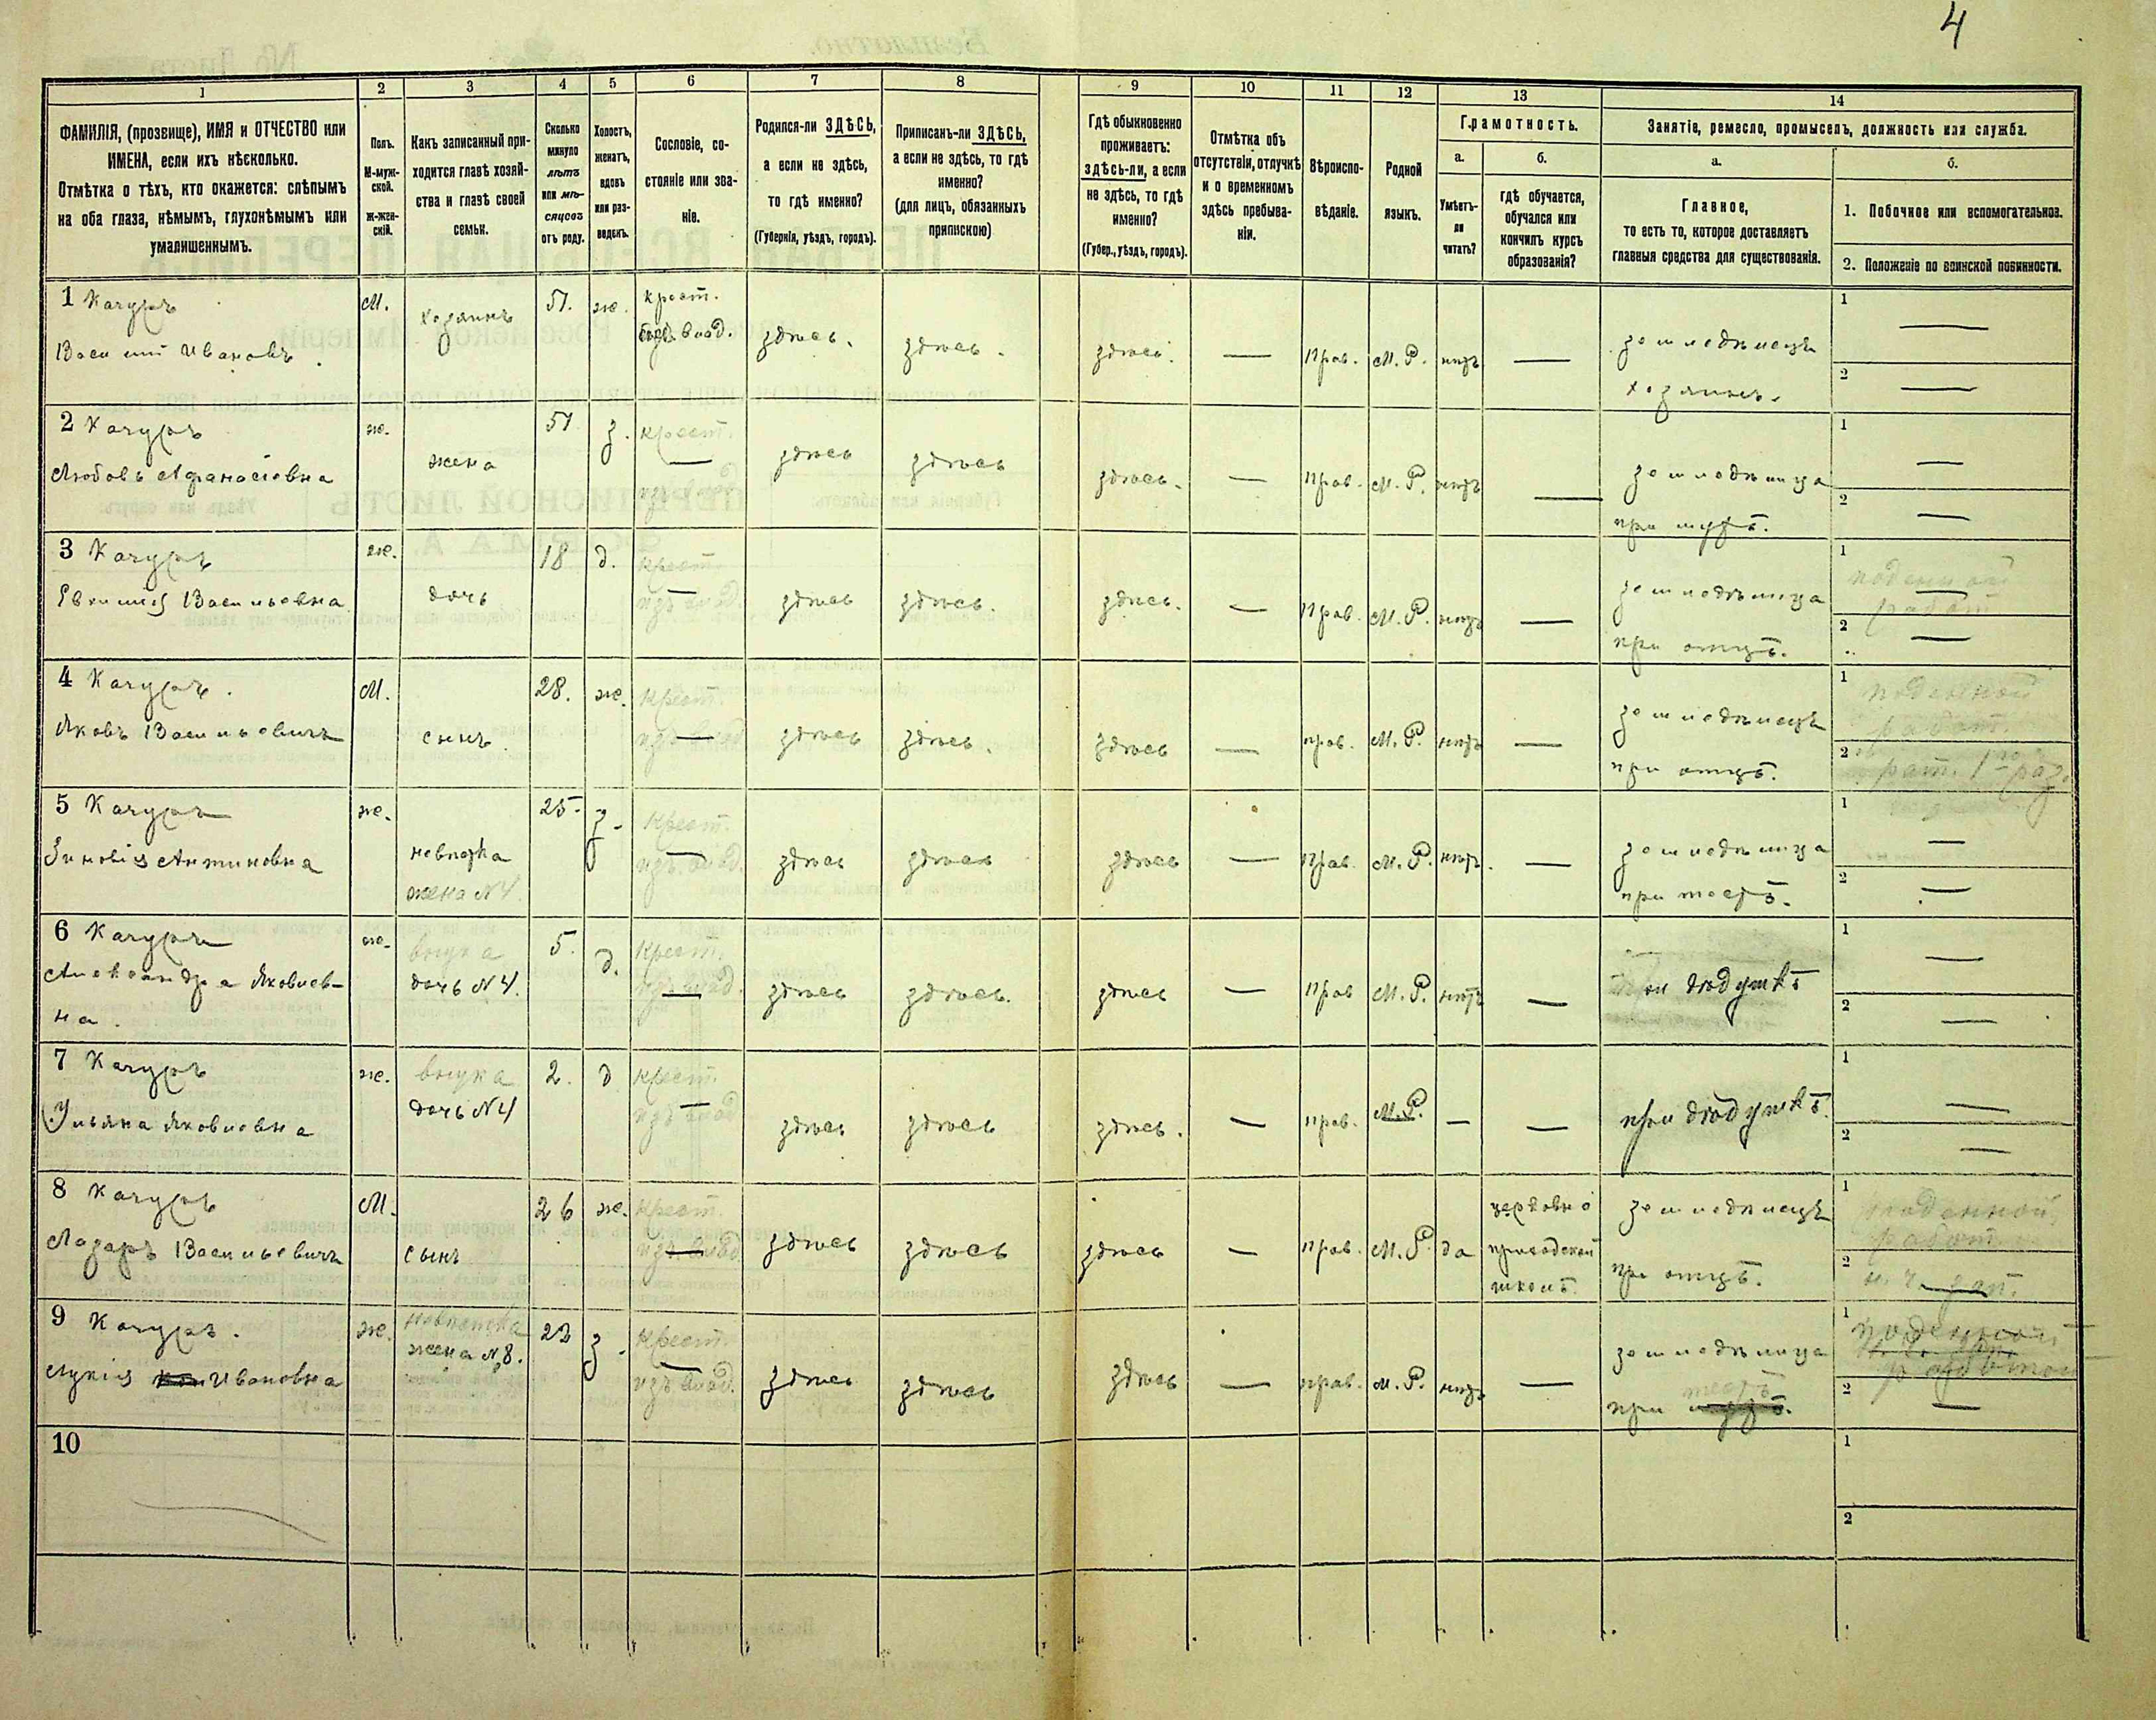 4
1
ФАМИЛІЯ, (прозвище), ИМЯ и ОТЧЕСТВО или
ИМЕНА, если ихъ нѣсколько.
Отмѣтка о тѣхъ, кто окажется: слѣпымъ
на оба глаза, нѣмымъ, глухонѣмымъ или
умалишеннымъ.
2
Полъ.
М-муж-
ской.
ж-жен-
скій.
3
Какъ записанный при-
ходится главѣ хозяй-
ства и главѣ своей
семьи.
4
Сколько
минуло
лѣтъ
или мѣ-
сяцевъ
отъ роду.
5
Холостъ,
женатъ,
вдовъ
или раз-
веденъ.
6
Сословіе, со-
стояніе или зва-
ніе.
7
Родился-ли ЗДѢСЬ,
а если не здѣсь,
то гдѣ именно?
(Губернія, уѣздъ, городъ).
8
Приписанъ-ли ЗДѢСЬ,
а если не здѣсь, то гдѣ
именно?
(для лицъ, обязанныхъ
припискою)
9
Гдѣ обыкновенно
проживаетъ:
ЗДѢСЬ-ЛИ, а если
не здѣсь, то гдѣ
именно?
(Губер., уѣздъ, городъ).
10
Отмѣтка объ
отсутствіи, отлучкѣ
и о временномъ
здѣсь пребыва-
ніи.
11
Вѣроиспо-
вѣданіе.
12
Родной
языкъ.
13
Грамотность.
а.
Умѣетъ-
ли
читать?
б.
гдѣ обучается,
обучался или
кончилъ курсъ
образованія?
14
Занятіе, ремесло, промыселъ, должность или служба.
а.
Главное,
то есть то, которое доставляетъ
главныя средства для существованія.
б.
1. Побочное или вспомогательное.
2. Положеніе по воинской повинности.
1 Качуръ
Василий Ивановъ.
М.
хозяинъ
51.
ж.
крест.
влад.
здѣсь.
здѣсь.
здѣсь.
—
Прав.
М. Р.
нѣтъ
—
земледѣлецъ
хозяинъ.
1 —
2 —
2 Качуръ
Любовь Афанасіевна
ж.
жена
51
з.
крест.
здѣсь
здѣсь
здѣсь.
—
Прав.
М. Р.
нѣтъ
—
земледѣлица
при мужѣ.
1 —
2 —
3 Качуръ
Евфимія Васильевна
ж.
дочь
18
д.
крест.
изъ влад.
здѣсь
здѣсь.
здѣсь.
—
Прав.
М. Р.
нѣтъ
—
земледѣлица
при отцѣ.
1 поденной
работ
2 —
4 Качуръ.
Яковъ Васильевичъ
М.
сынъ.
28.
ж.
крест.
изъ влад
здѣсь
здѣсь.
здѣсь
—
прав.
М. Р.
нѣтъ
—
земледѣлецъ
при отцѣ.
1 поденной
работ.
2 рат. 1го раз.
5 Качуръ
Зиновія Антиновна
ж.
невѣстка
жена N 4.
25.
з.
крест.
изъ влад.
здѣсь
здѣсь
здѣсь
—
Прав.
М. Р.
нѣтъ.
—
земледѣлица
при тестѣ.
1 —
2 —
6 Качуръ
Александра Яковлев-
на.
ж.
внука
дочь N 4.
5.
д.
крест.
изъ влад.
здѣсь
здѣсь.
здѣсь
—
Прав
М. Р.
нѣтъ
—
при дѣдушкѣ
1 —
2 —
7 Качуръ
Ульяна Яковлевна
ж.
внука
дочь N 4
2.
д
крест.
изъ влад
здѣсь
здѣсь
здѣсь.
—
прав.
М. Р.
—
—
при дѣдушкѣ.
1 —
2 —
8 Качуръ
Лазарь Васильевичъ
М.
сынъ
26
ж.
крест.
изъ влад
здѣсь
здѣсь
здѣсь
—
прав.
М. Р.
да
церковно
приходской
школѣ.
земледѣлецъ
при отцѣ.
1 поденной
работ.
2
9 Качуръ.
Лукія Ивановна
ж.
невѣстка
жена N 8.
22
з.
крест.
изъ влад.
здѣсь
здѣсь
здѣсь
—
прав.
М. Р.
нѣтъ
—
земледѣлица
при тестѣ
1 поденной
работой
2 —
10
1
2